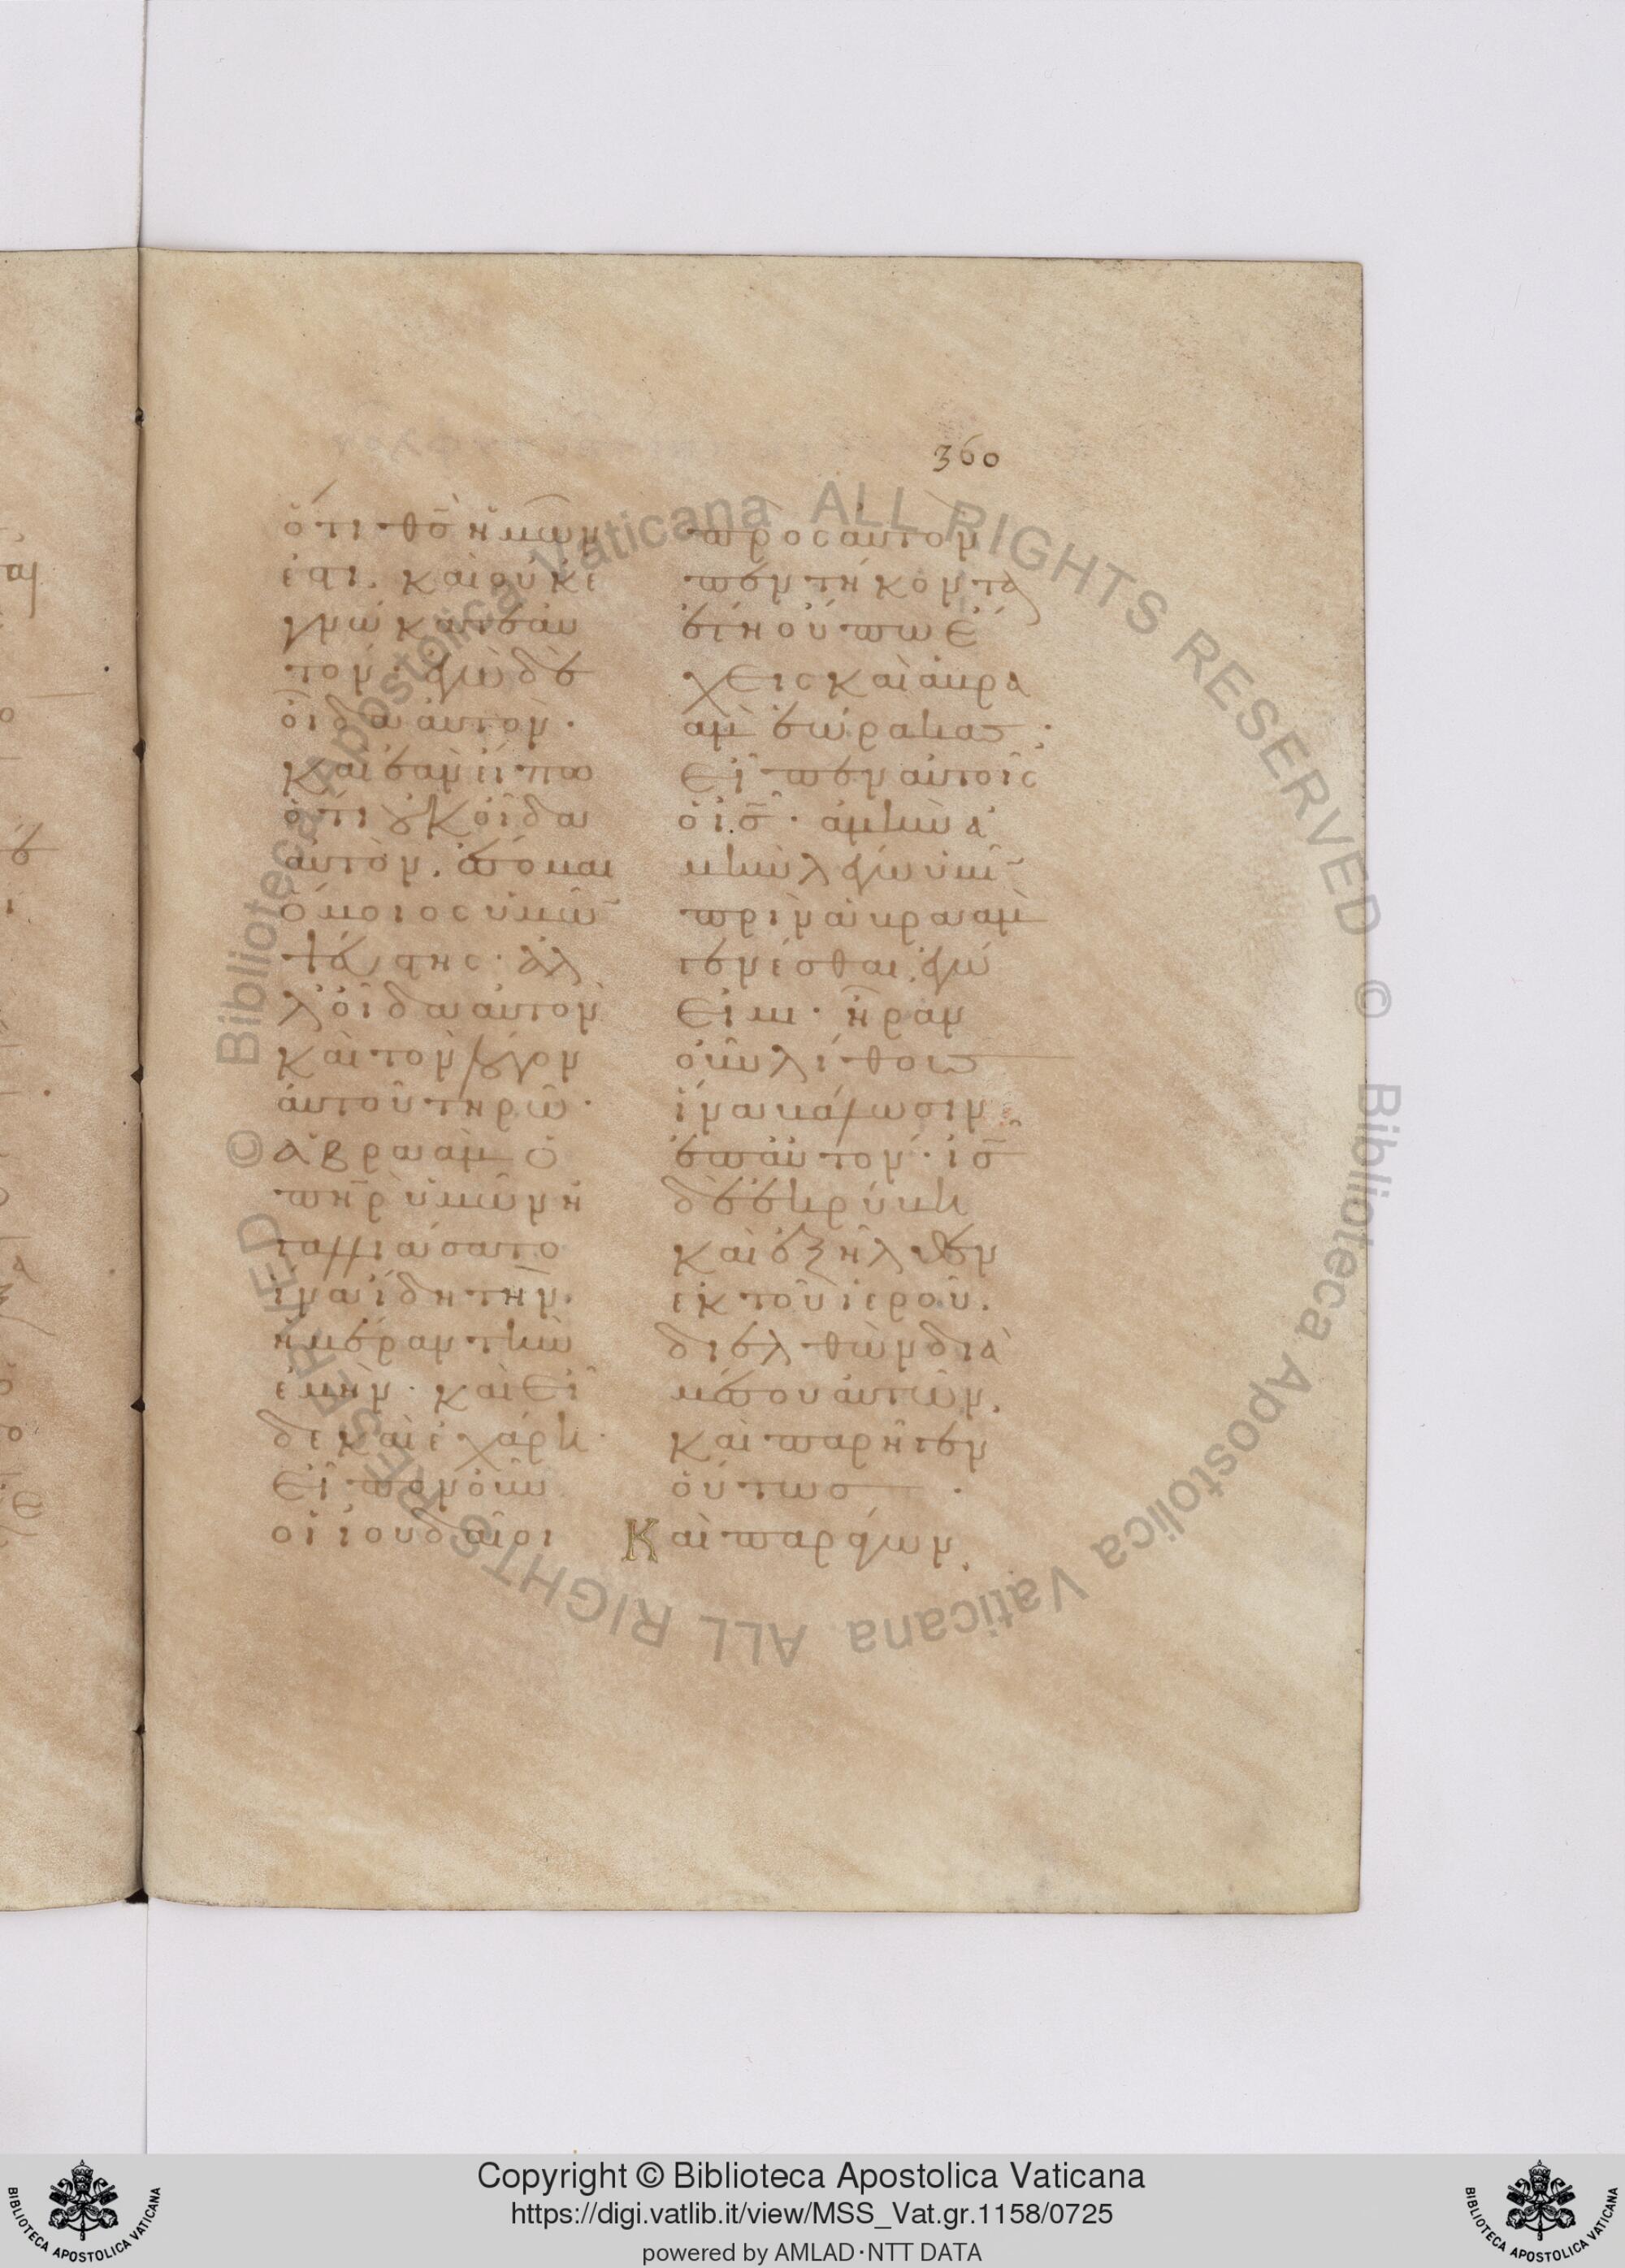 360
ὅτι θ̅ς̅ ἡμῶν
ἐστι. καὶ οὐκ ἐ
γνώκατε αὐ
τόν· ἐγὼ δὲ
οἶδα αὐτόν·
καὶ ἐὰν εἴπω
ὅτι οὐκ οἶδα
αὐτὸν, ἔσομαι
ὅμοιος ὑμῶ̅
ψεύστης· ἀλ
λ' οἶδα αὐτὸν
καὶ τὸν λόγον
αὐτοῦ τηρῶ·
ἀβραὰμ ὁ
π̅η̅ρ̅ ὑμῶν ἠ
γαλλιάσατο
ἵνα ἴδη τὴν
ἡμέραν τὴν
ἐμήν· καὶ εἶ
δε καὶ ἐχάρη·
εἶπον οὖν
οἱ ἰουδαῖοι
πρὸς αὐτὸν
πεντήκοντα
ἔτη οὔπω ἔ
χεις καὶ ἀβρα
ὰμ ἑώρακας·
εἶπεν αὐτοῖς
ὁ ι̅ς̅· ἀμὴν ἀ
μὴν λέγω ὑμῖ̅
πρὶν ἀβραὰμ
γενέσθαι, ἐγώ
εἰμι· ἦραν
οὖν λίθους
ἵνα βάλωσιν
ἐπ' αὐτόν· ι̅ς̅
δὲ ἐκρύβη
καὶ ἐξῆλθεν
ἐκ τοῦ ἱεροῦ.
διελθὼν διὰ
μέσου αὐτῶν.
καὶ παρῆγεν
οὕτως·
Καὶ παράγων
Copyright © Biblioteca Apostolica Vaticana
https://digi.vatlib.it/view/MSS_Vat.gr.1158/0725
powered by AMLAD·NTT DATA
BIBLIOTECA APOSTOLICA VATICANA
BIBLIOTECA APOSTOLICA VATICANA
© Biblioteca Apostolica Vaticana ALL RIGHTS RESERVED
© Biblioteca Apostolica Vaticana ALL RIGHTS RESERVED